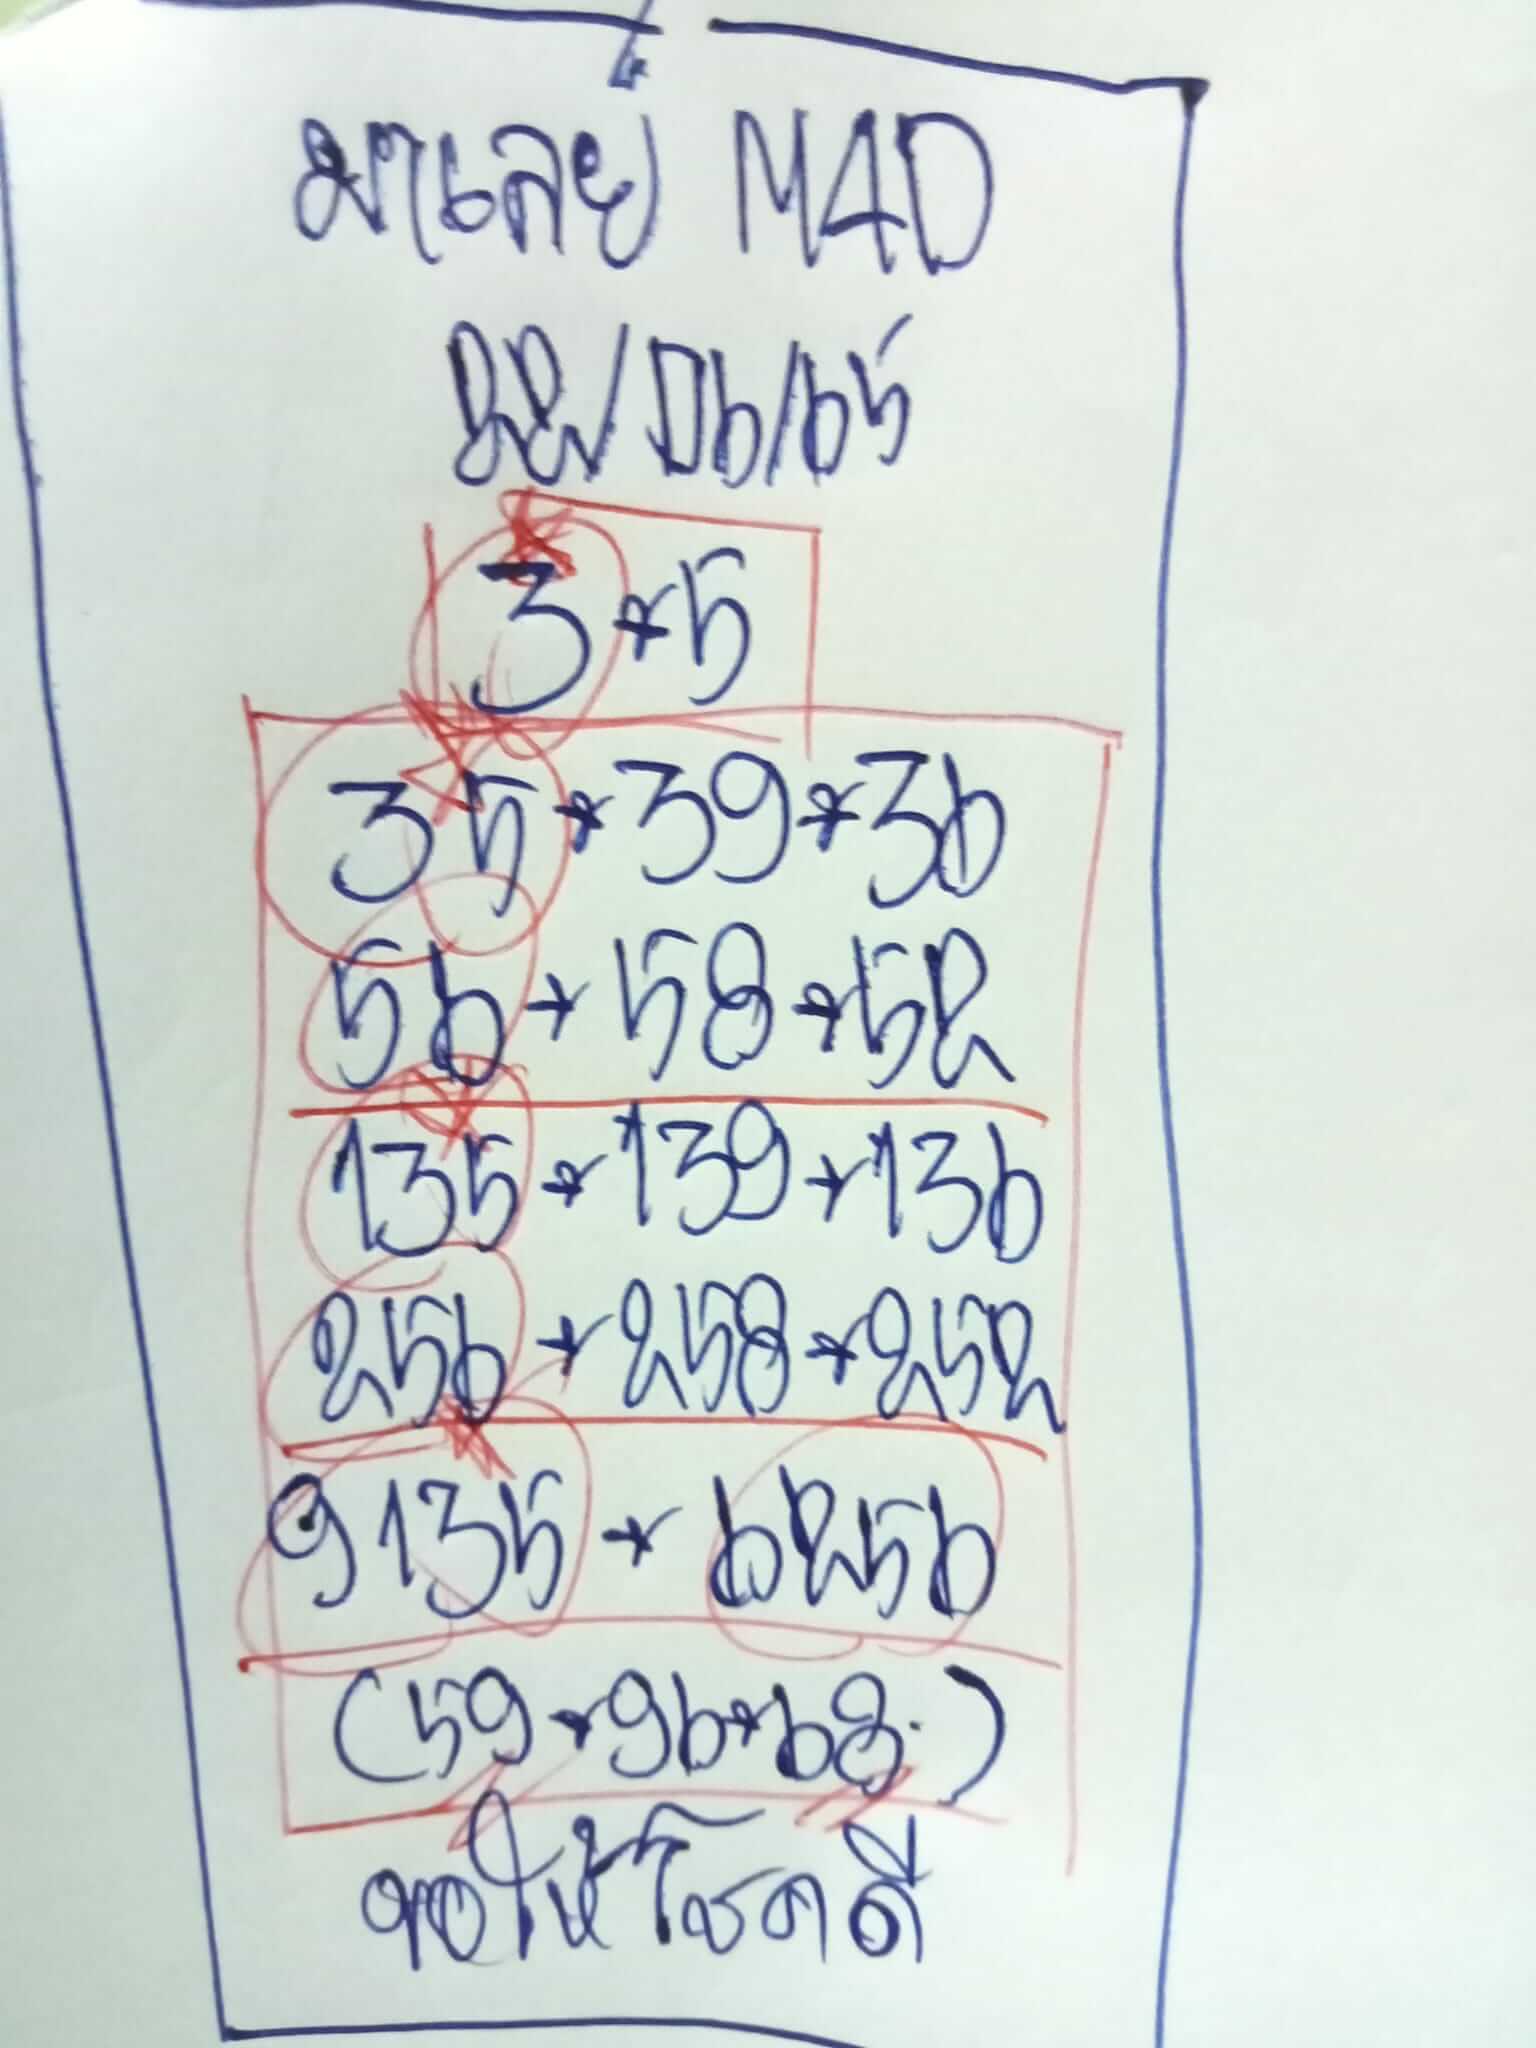 มาเลย์ M4D
22/06/65
3*5
35*39*36
56*58*52
135*139*136
256*258*252
9135*6256
(59*96*68.)
ขอให้โชคดี